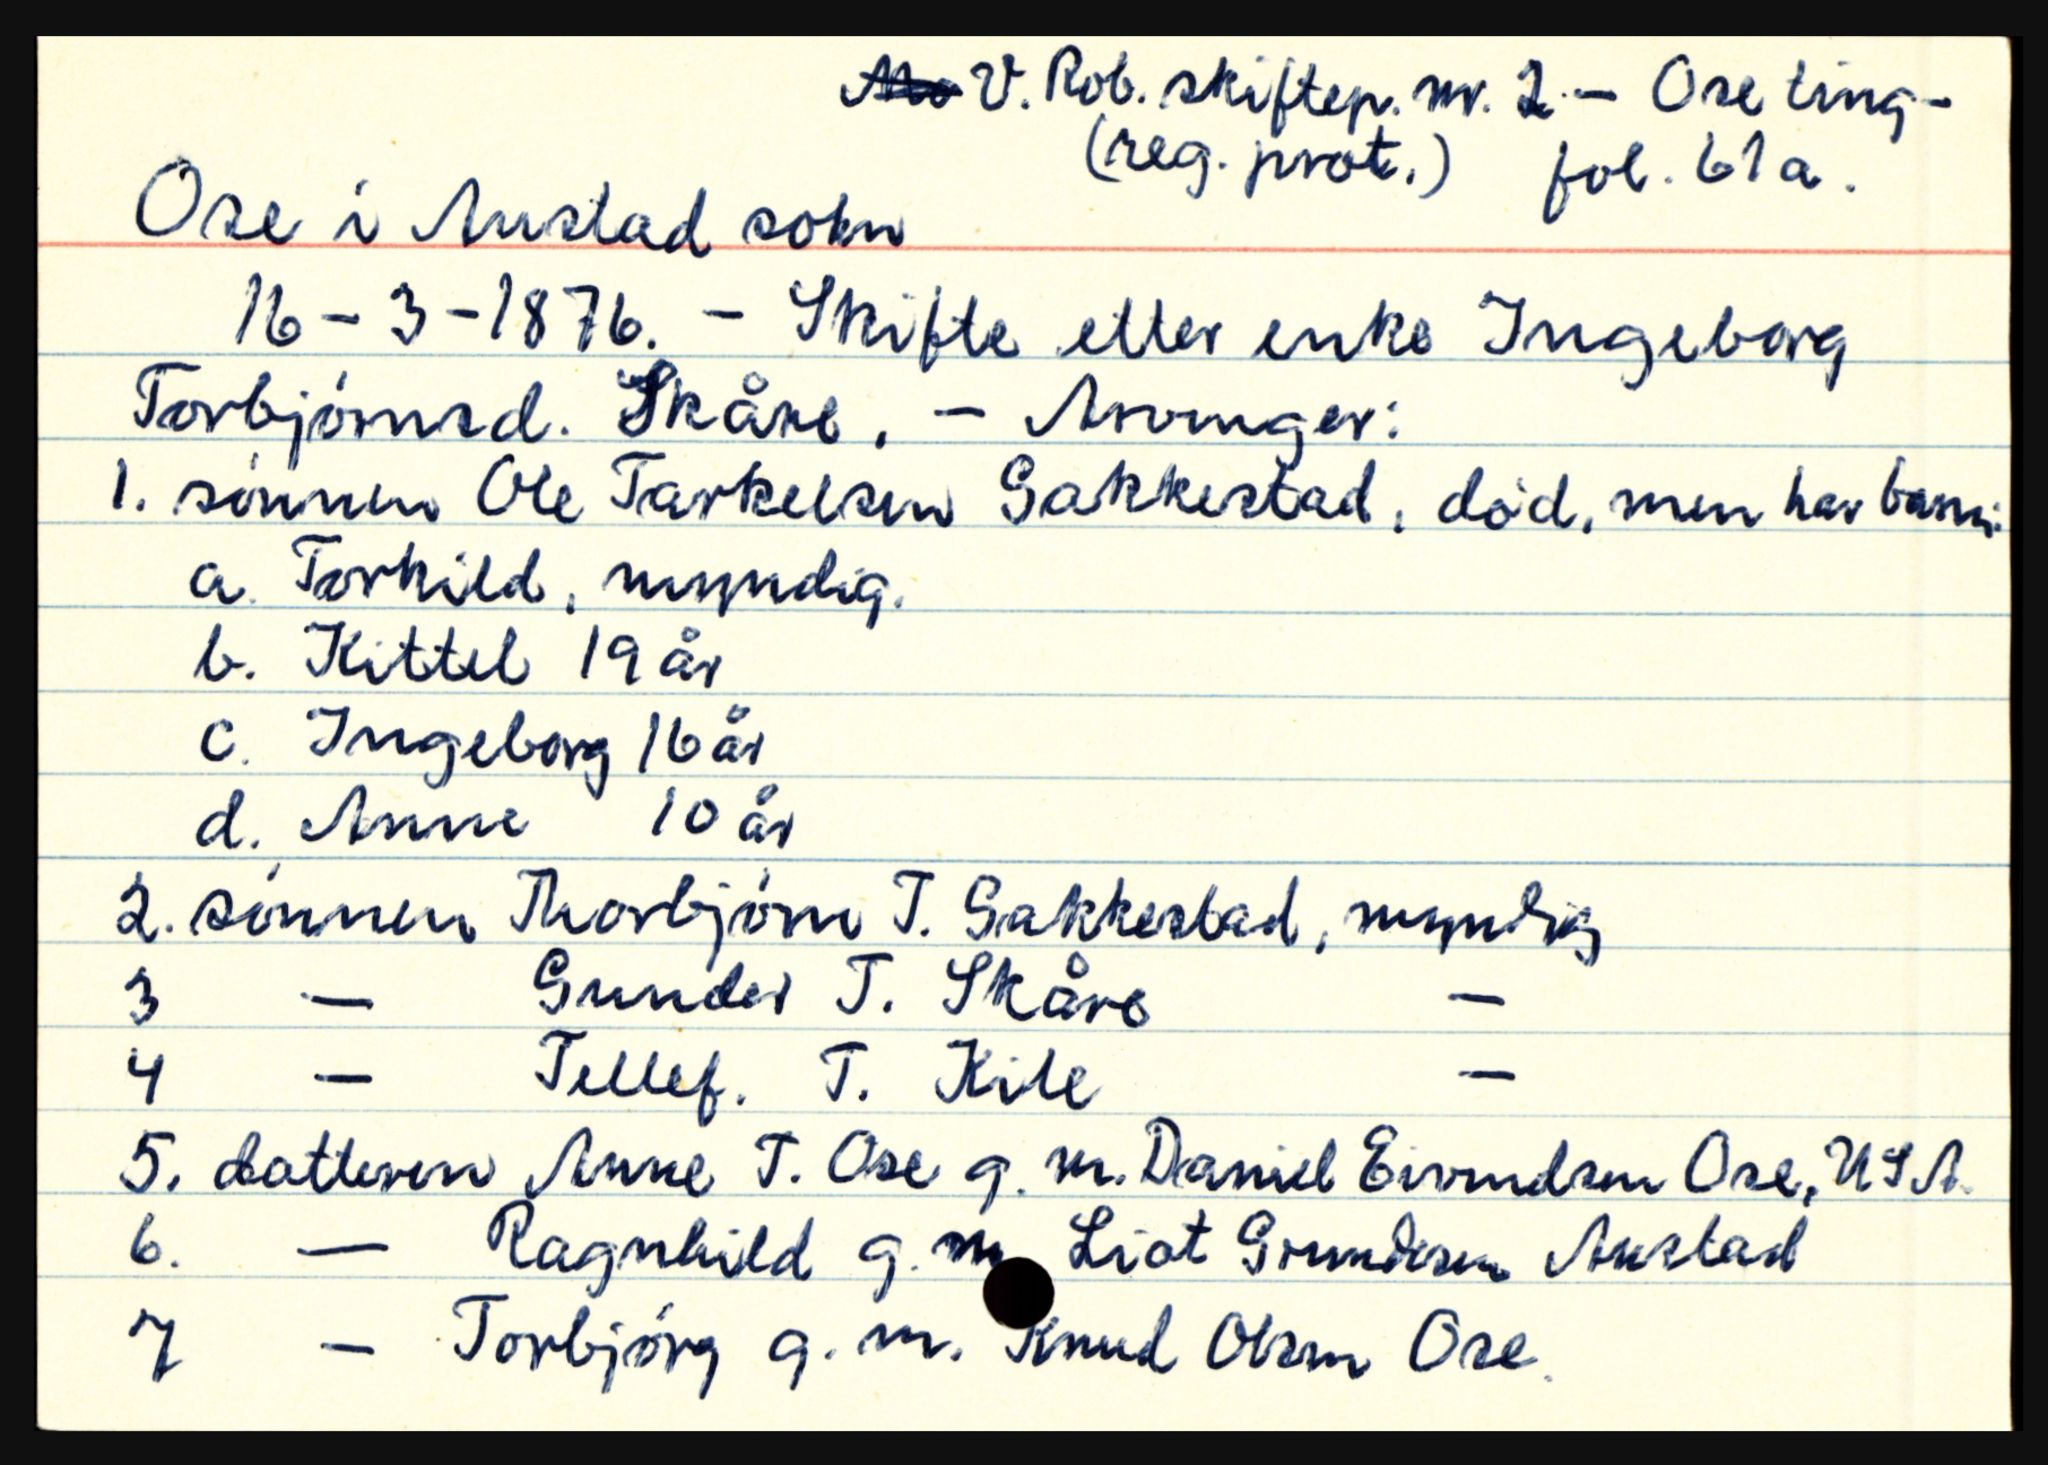 V. Rob. skiftep. nr. 2 - Ose ting-
(reg. prot.) fol. 61a.
Ose i Austad sokn
16-3-1876. - Skifte etter enke Ingeborg
Torbjørnsd. Skåre, - Arvinger:
1. sønnen Ole Tarkelsen Gakkestad, død, men har barn:
a. Torkild, myndig.
b. Kittel 19 år
c. Ingeborg 16 år
d. Anne 10 år
2. sønnen Thorbjørn T. Gakkestad, myndig
3 - Gunder T. Skåre -
4 - Tellef. T. Kile -
5. datteren Anne T. Ose g. m. Daniel Eivindsen Ose, USA.
6. - Ragnhild g. m Liot Gundersen Austad
7 - Torbjørg g. m. Knud Olsen Ose.